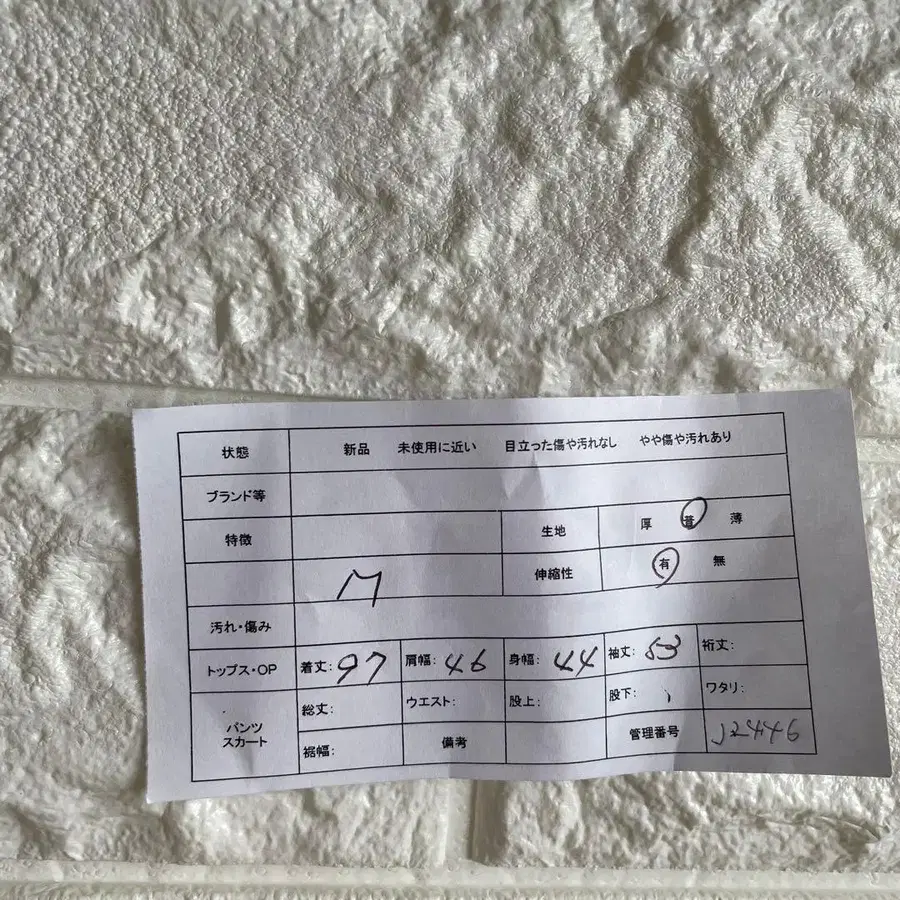 状態 新品 未使用に近い 目立った傷や汚れなし やや傷や汚れあり
ブランド等
特徴 生地 厚 普 薄
M 伸縮性 有 無
汚れ・傷み
トップス・OP 着丈: 97 肩幅: 46 身幅: 44 袖丈: 53 裄丈:
パンツ
スカート
総丈: ウエスト: 股上: 股下: ワタリ:
裾幅: 備考 管理番号 J2446